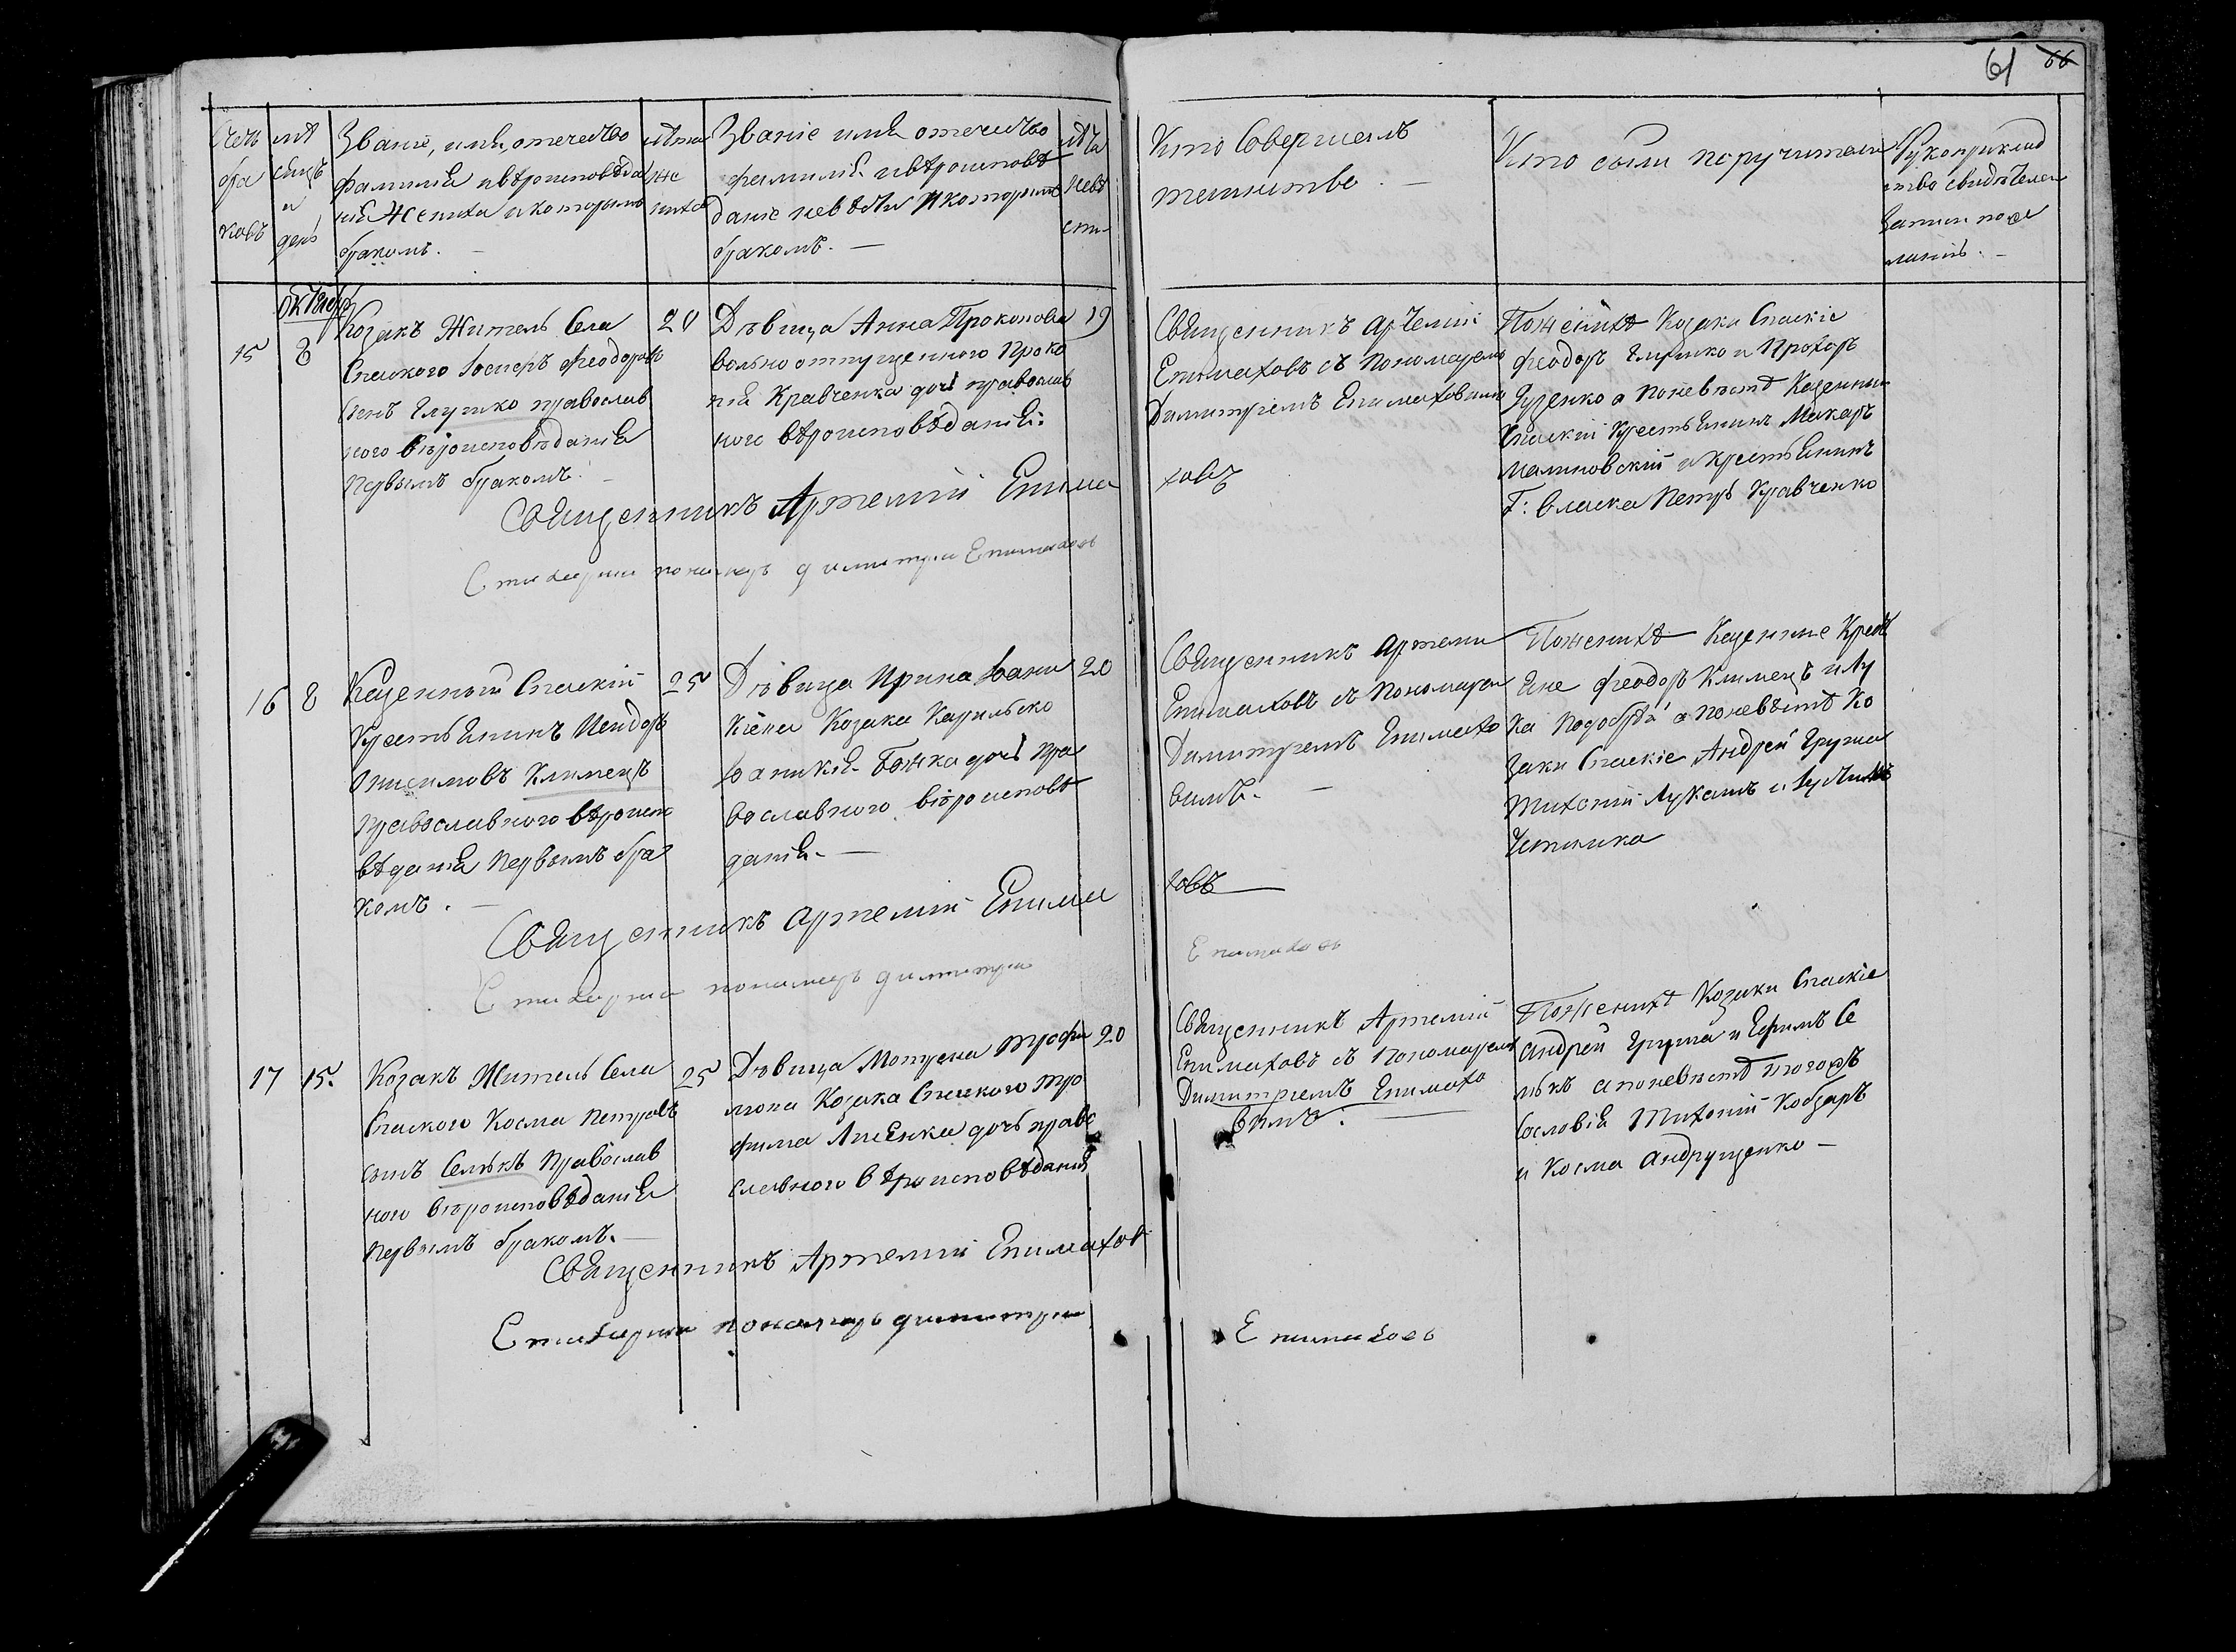 61 66
Счетъ
бра
ковъ
мѣ
сяцъ
и
день
Званіе, имя, отечество
фамилія и вѣроисповѣда
нія Жениха и которымъ
бракомъ. —
лѣта
же
ниха
Званіе имя отечество
фамилія и вѣроисповѣ
даніе невѣсты и которымъ
бракомъ. —
лѣта
невѣ
сты
Кто Совершалъ
таинство. —
Кто были поручители
Рукоприклад
ство свидѣтелей
записи по же
ланію. —
Октябрь
15
8
Козакъ Житель Села
Спаского Іосифъ Феодоровъ
сынъ Глушко православ
ного вѣроисповѣданія
первымъ бракомъ. —
20
Дѣвица Анна Прокопова
вольноотпущенного Проко
пія Кравченка дочь православ
ного вѣроисповѣданія.
19
Священникъ Артемій
Епимаховъ съ Пономаремъ
Димитріемъ Епимаховымъ
По женихѣ Козаки Спаскіе
Феодоръ Глушко и Прохоръ
а по невѣстѣ Казенный
Спаскій Крестьянинъ Макаръ
Малиновскій и крестьянинъ
Г: Петръ Кравченко
Священникъ Артемій Епима
ховъ
Стихарный пономарь Димитрій Епимаховъ
16
8
Казенный Спаскій
Крестьянинъ Исидоръ
Онисимовъ Клименцъ
Православного вѣроиспо
вѣданія Первымъ бра
комъ. —
25
Дѣвица Ирина Іоани
кіева Козака Карильско
Іоаникія Божка дочь пра
вославного вѣроисповѣ
данія. —
20
Священникъ Артемій
Епимаховъ съ Пономаремъ
Димитріемъ Епимахо
вымъ. —
По женихѣ Казенные Кресть
яне Феодоръ Клименцъ и Лу
ка Подобѣд а по невѣстѣ Ко
заки Спаскіе Андрей Груша
Тихоній Лукашъ и
Священникъ Артемій Епима
ховъ
Стихарный пономарь Димитрій
Епимаховъ
17
15.
Козакъ Житель Села
Спаского Косма Петровъ
сынъ Селѣкъ Православ
ного вѣроисповѣданія
первымъ бракомъ. —
25
Дѣвица Мотрона Трофи
мова Козака Спаского Тро
фима дочь право
славного вѣроисповѣданія
20
Священникъ Артемій
Епимаховъ съ Пономаремъ
Димитріемъ Епимахо
вымъ.
По женихѣ Козаки Спаскіе
Андрей Груша и Ефимъ Се
лѣкъ а по невѣстѣ тогожъ
сословія Тихоній Кобзаръ
и Косма Андрущенко —
Священникъ Артемій Епимахов
Стихарный пономарь Димитрій
Епимаховъ